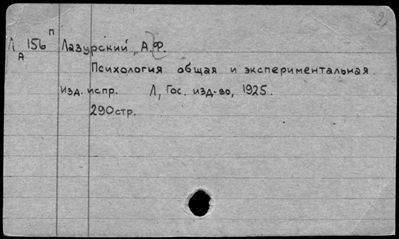 Л 156 п Лазурский, А.Ф.
А
Психология общая и экспериментальная.
Изд. испр. Л, Гос. изд-во, 1925.
290стр.